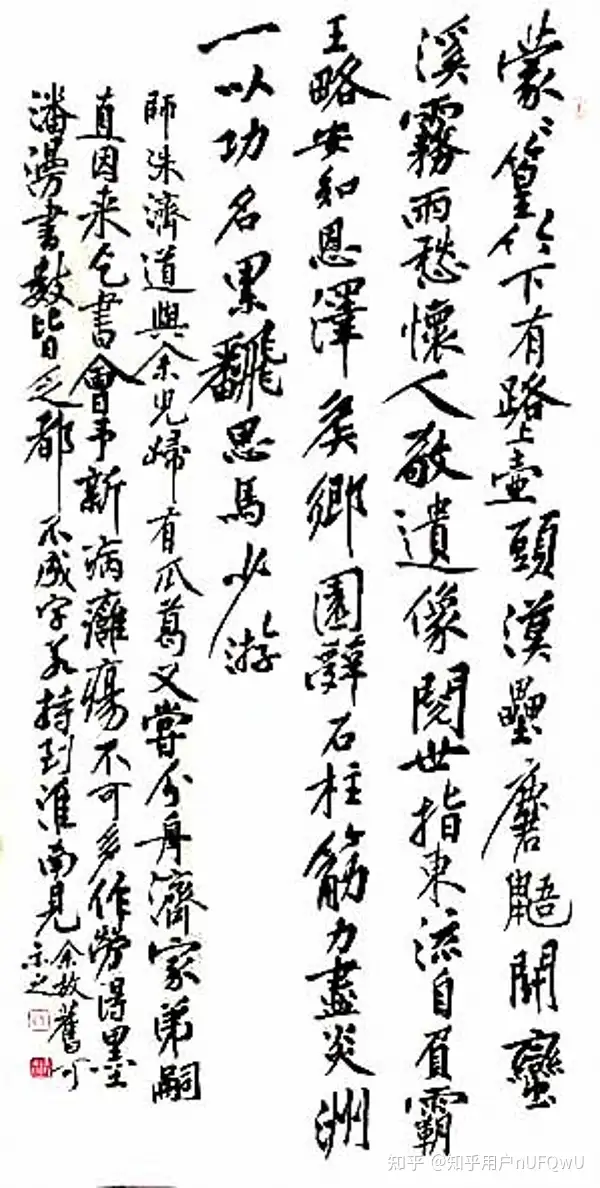 蒙〻篁竹下有路上壺頭漢壘麏鼯鬭蠻
溪霧雨愁懷人敬遺像閱世指東流自負霸
王略安知恩澤侯鄉園辭石柱筋力盡炎洲
一以功名累飜思馬少游
師洙濟道與余兒婦有瓜葛又嘗分舟濟家弟嗣
直因來乞書會予新病癰瘍不可多作勞得墨
瀋漫書數皆乏都不成字若持到淮南見余故舊可
示之
知乎 @知乎用户nUFQwU